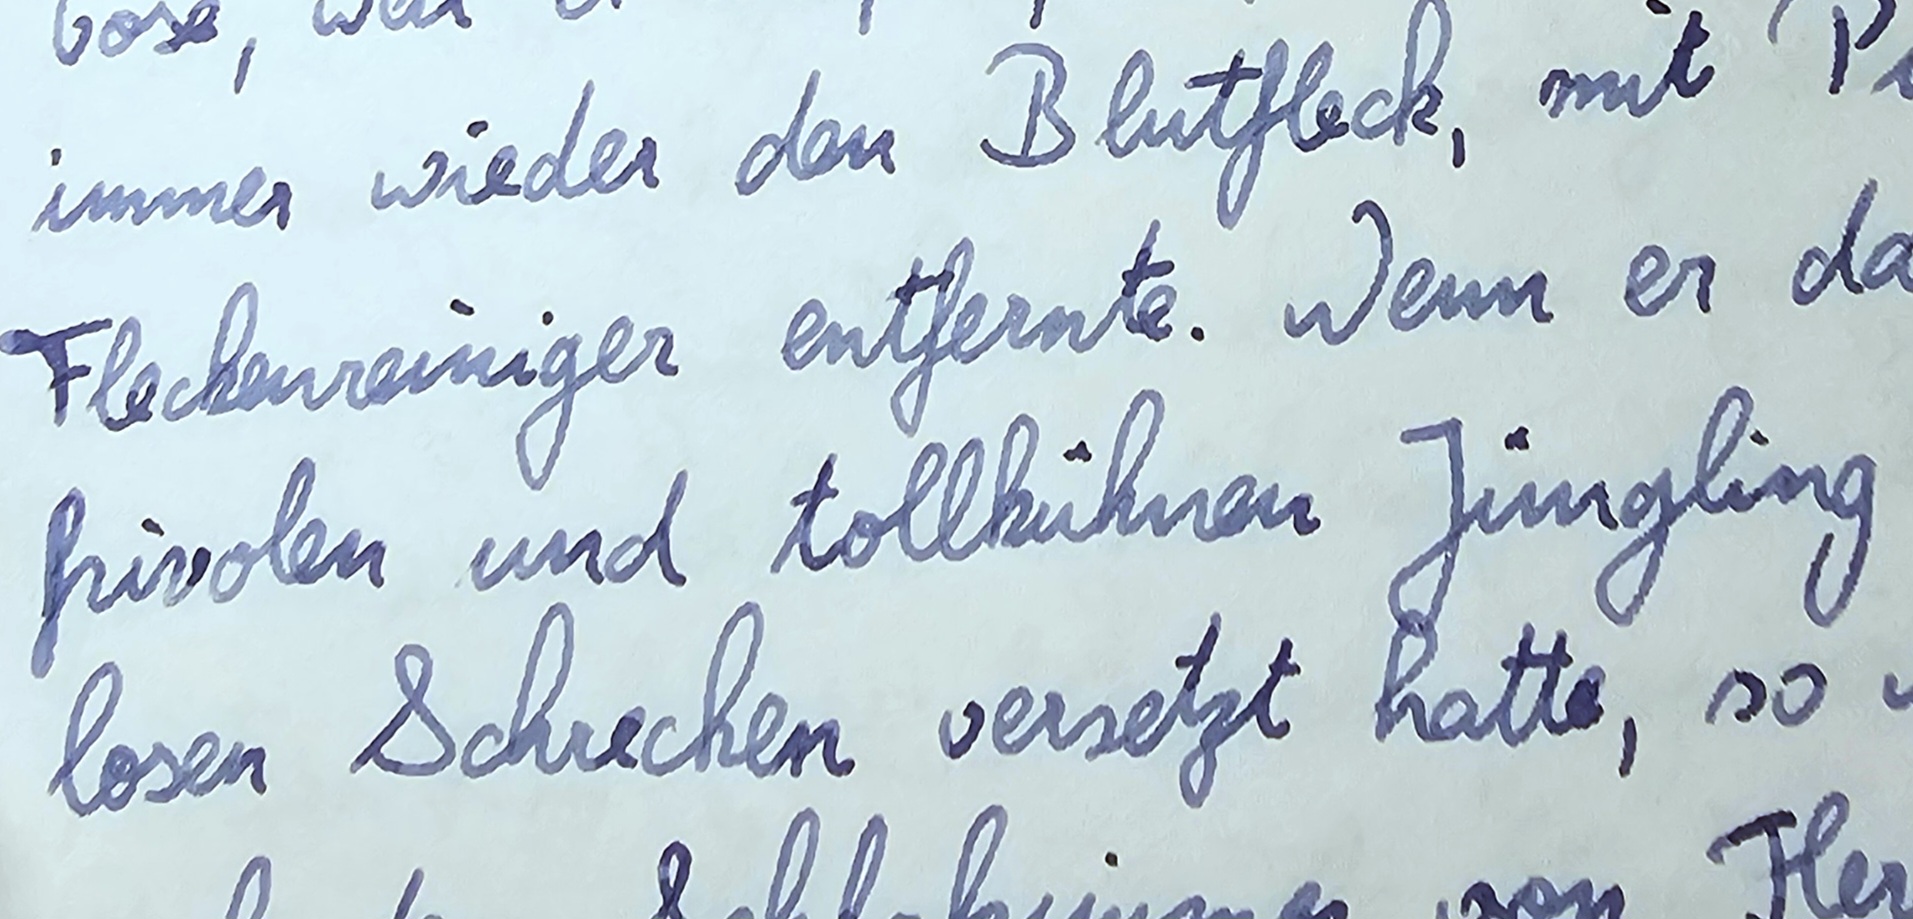 böse, weil
immer wieder den Blutfleck, mit
Fleckenreiniger entfernte. Wenn er
frivolen und tollkühnen Jüngling
losen Schrecken versetzt hatte, so
Schlafzimmer von